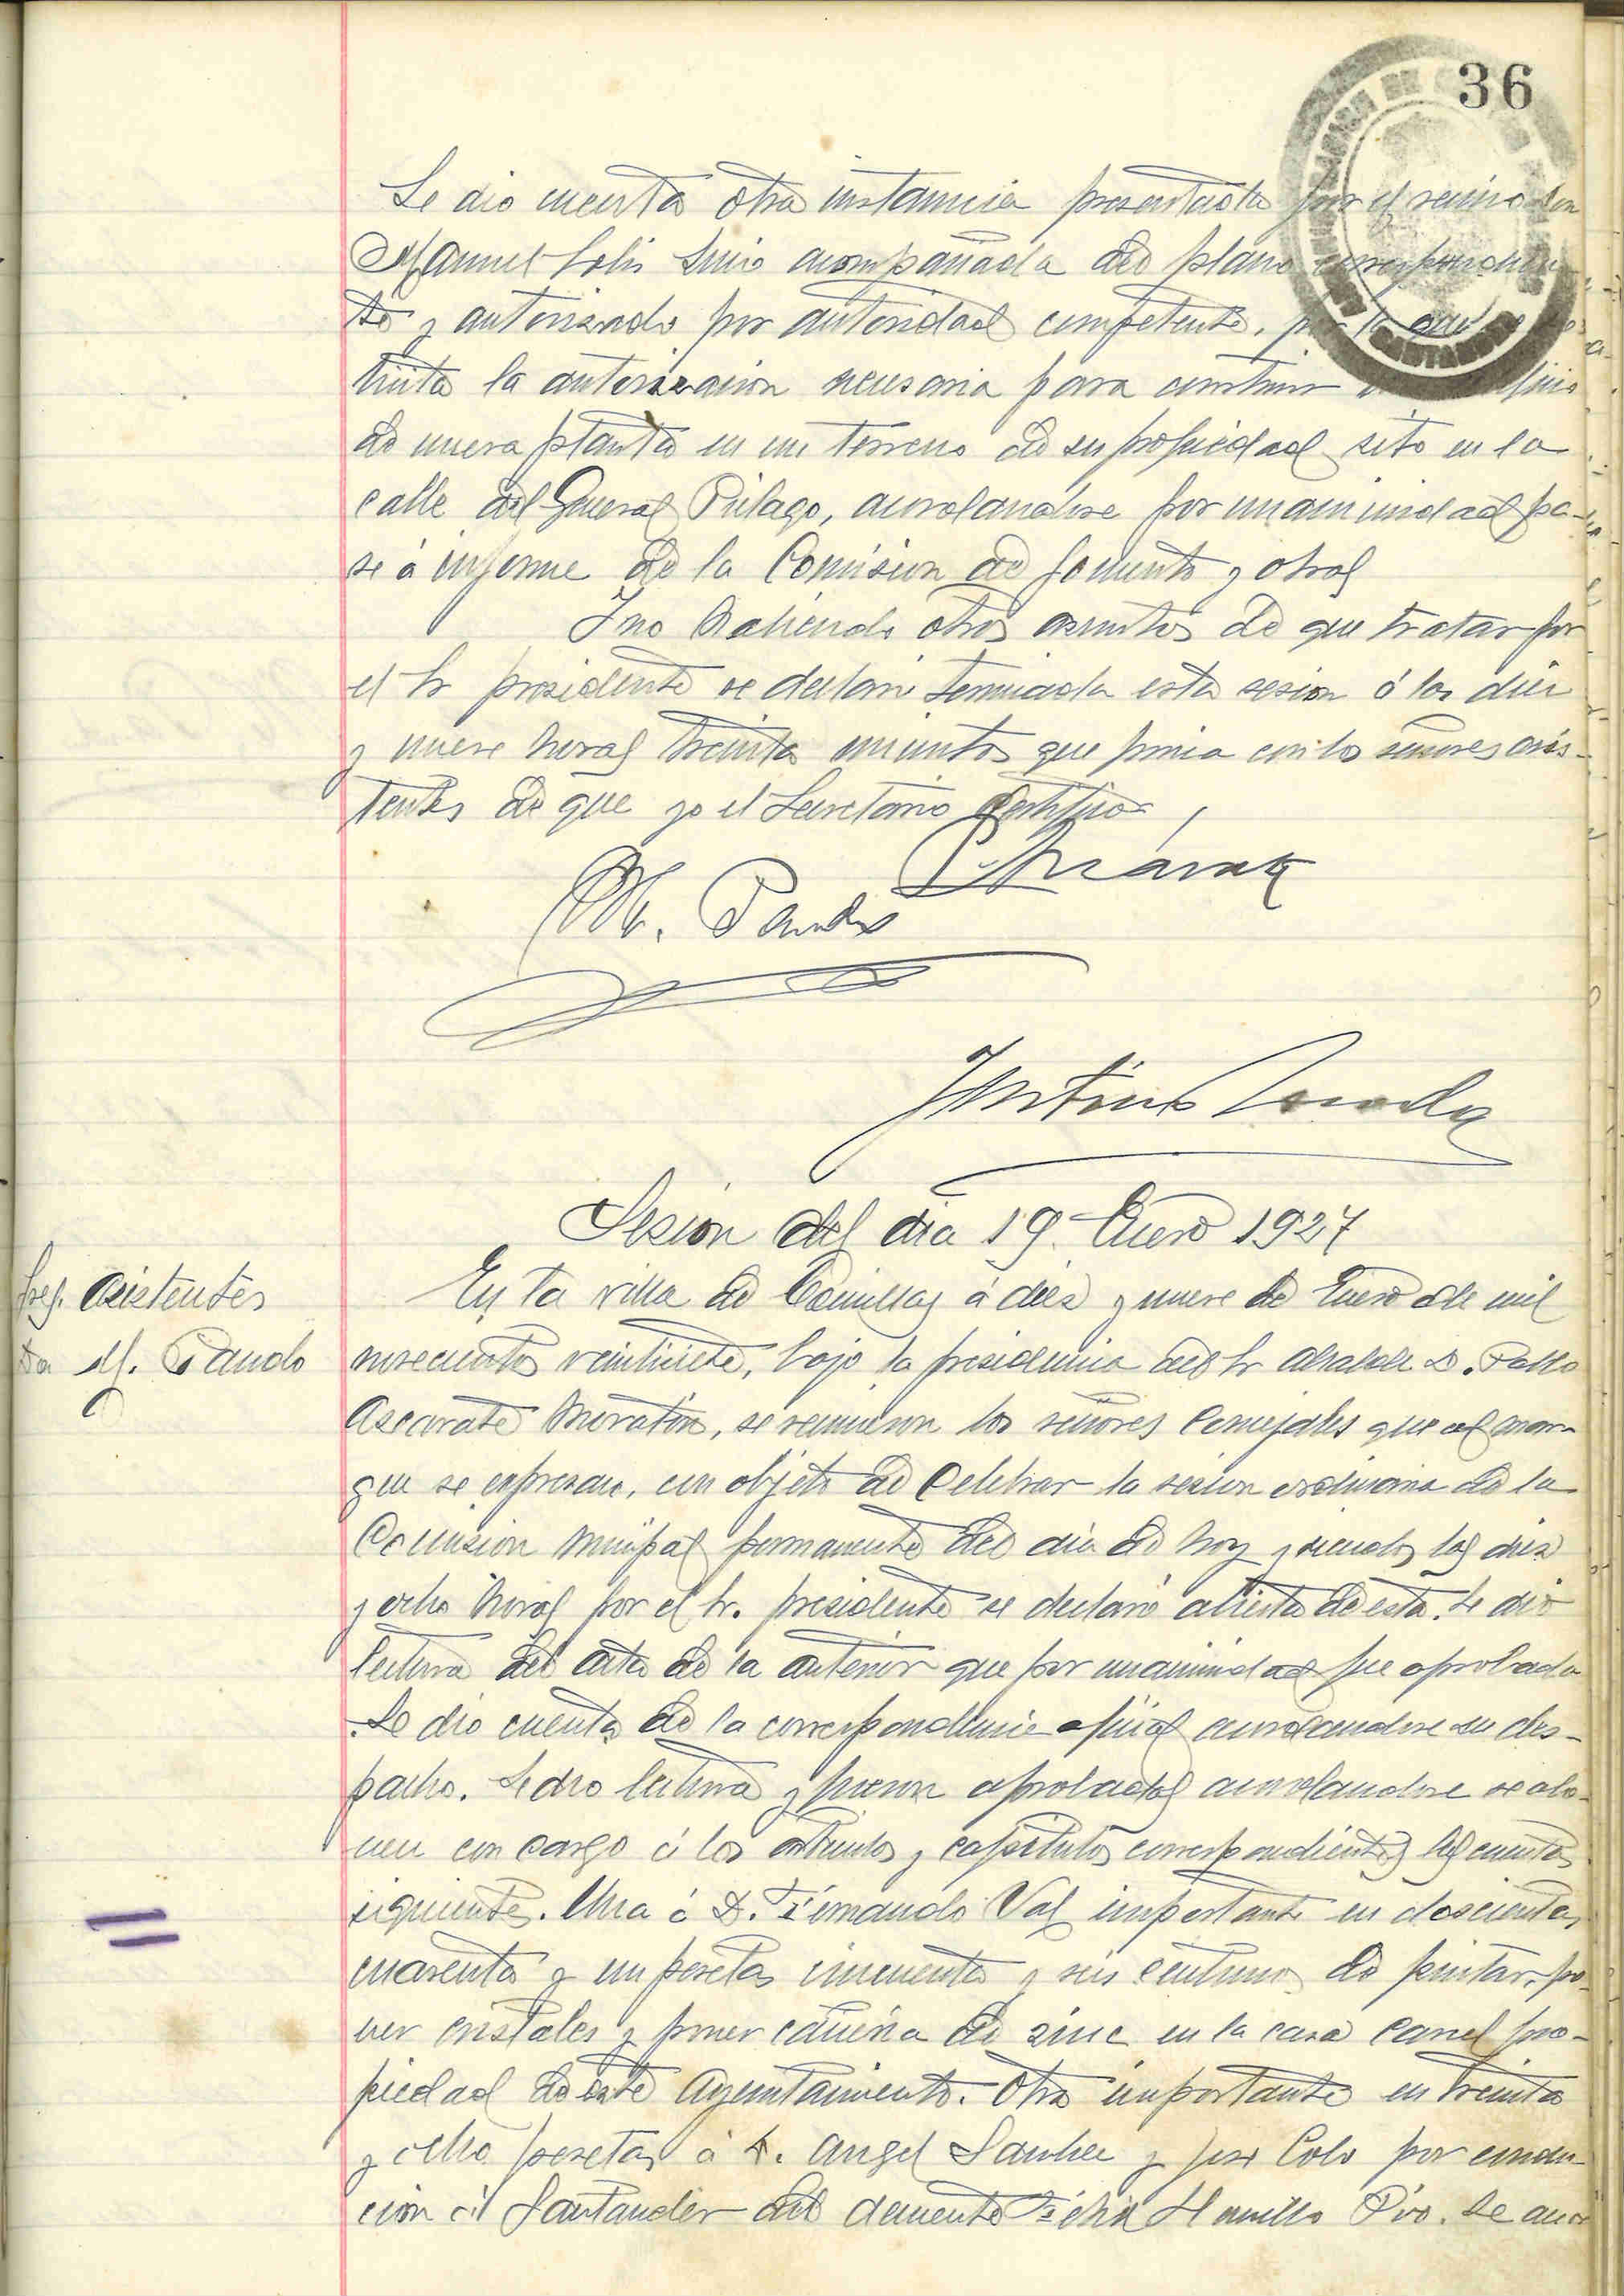 36
Se dio cuenta otra instancia presentada por el vecino don
Manuel Solis acompañada del plano correspondien-
te y autorizado por autoridad competente, por la que
licita la autorización necesaria para construir
de nueva planta en un terreno de su propiedad sito en la
calle del General Piélago, acordandose por unanimidad pa-
se á informe de la Comisión de fomento y obras
Y no habiendo otros asuntos de que tratar por
el Sr presidente se declaró terminada esta sesion á las diez
y nueve horas treinta minutos que firma con los señores asis-
tentes de que yo el Secretario certifico
M. Pando
Sesión del dia 19 Enero 1927
Sres. Asistentes
M. Pando
En la villa de Comillas á diez y nueve de Enero de mil
novecientos veintisiete, bajo la presidencia del Sr Alcalde D. Pablo
Ascarate Moratón, se reunieron los señores Concejales que al mar-
gen se expresan, con objeto de celebrar la sesion ordinaria de la
Comision Munipal permanente del día de hoy y siendo las diez
y ocho horas por el Sr. presidente se declaró abierta de esta. Se dió
lectura del acta de la anterior que por unanimidad fue aprobada
Se dio cuenta de la correspondencia oficial acordandose su des-
pacho. Se dio lectura y fueron aprobadas acordandose se abo-
nen con cargo á los artículos y capitulos correspondientes las cuentas
siguientes. Una á D. Fernando Val importante en doscientas
cuarenta y un pesetas cincuenta y seis centimos de pintar, po-
ner cristales y poner cañeria de zinc en la casa carcel pro-
piedad de este Ayuntamiento. Otra importante en treinta
y ocho pesetas á D. Angel Sanchez y Jose Cobo por conduc-
ción á Santander del demente Félix Pvo. Se acor